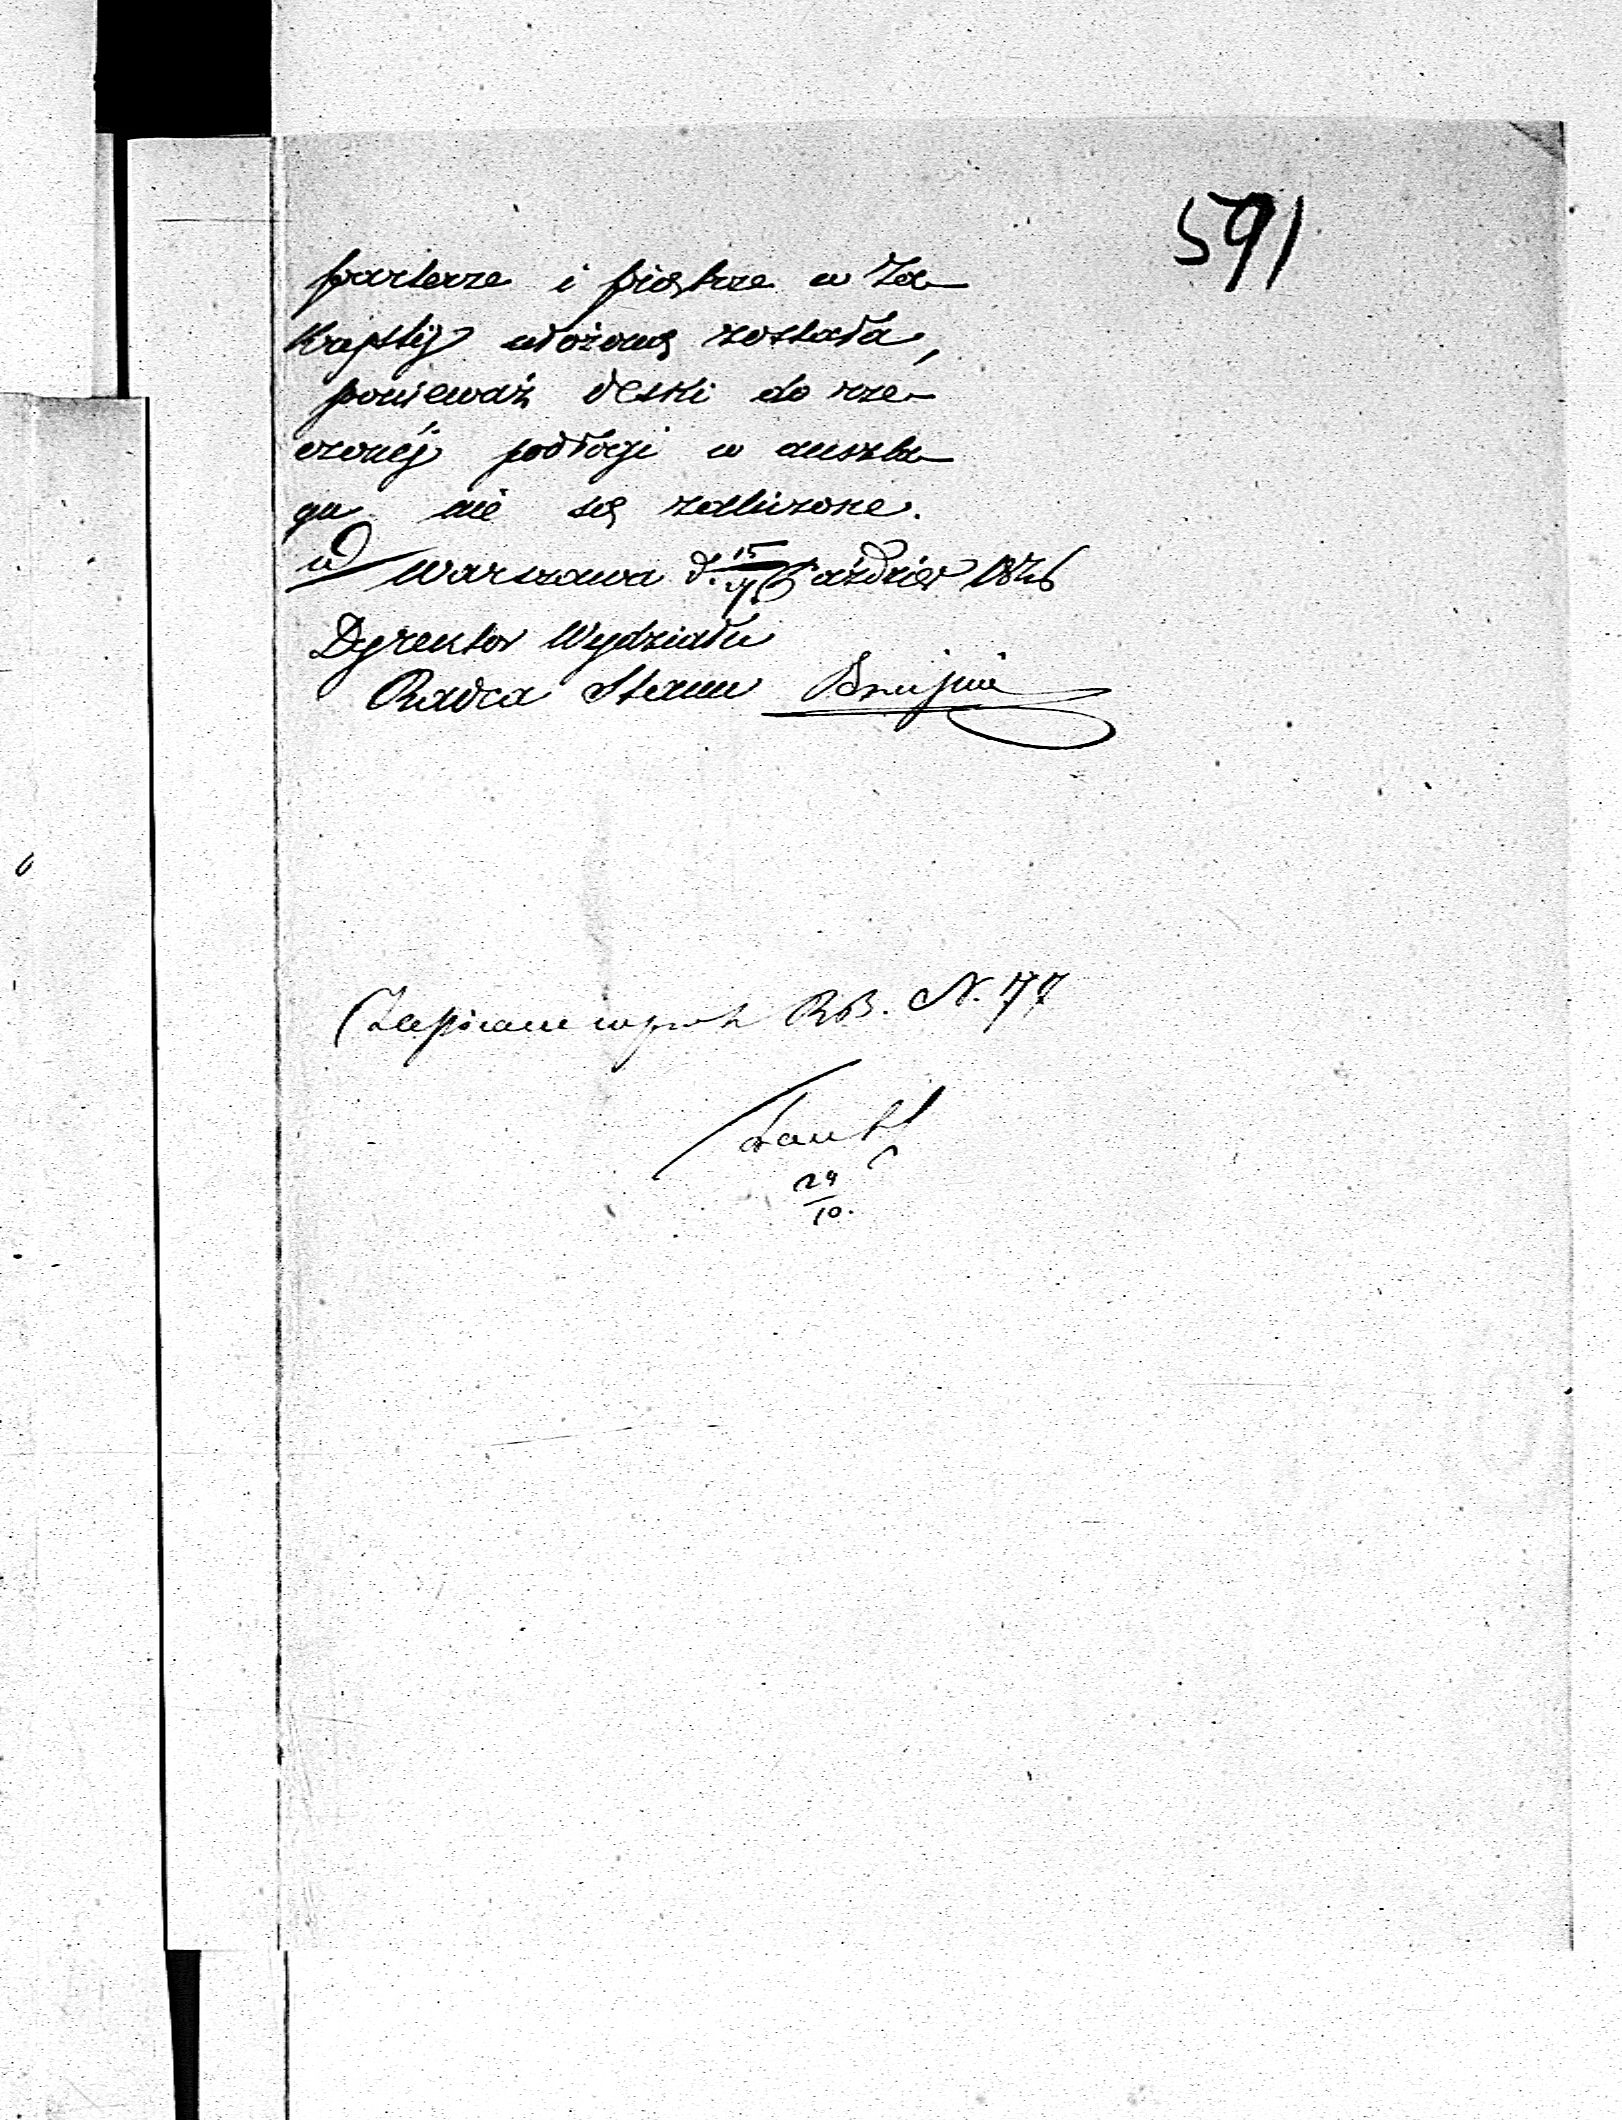 591
parterze i piętrze w Za-
krystij ułożoną została,
ponieważ deski do rze-
czonéj podłogi w anszla-
gu nie są zaliczone.
w Warszawa d. 15/27 Paździer 1846
Dyrektor Wydziału
Radca Stanu
Zapisane w prot RB. N. 177
29/10.